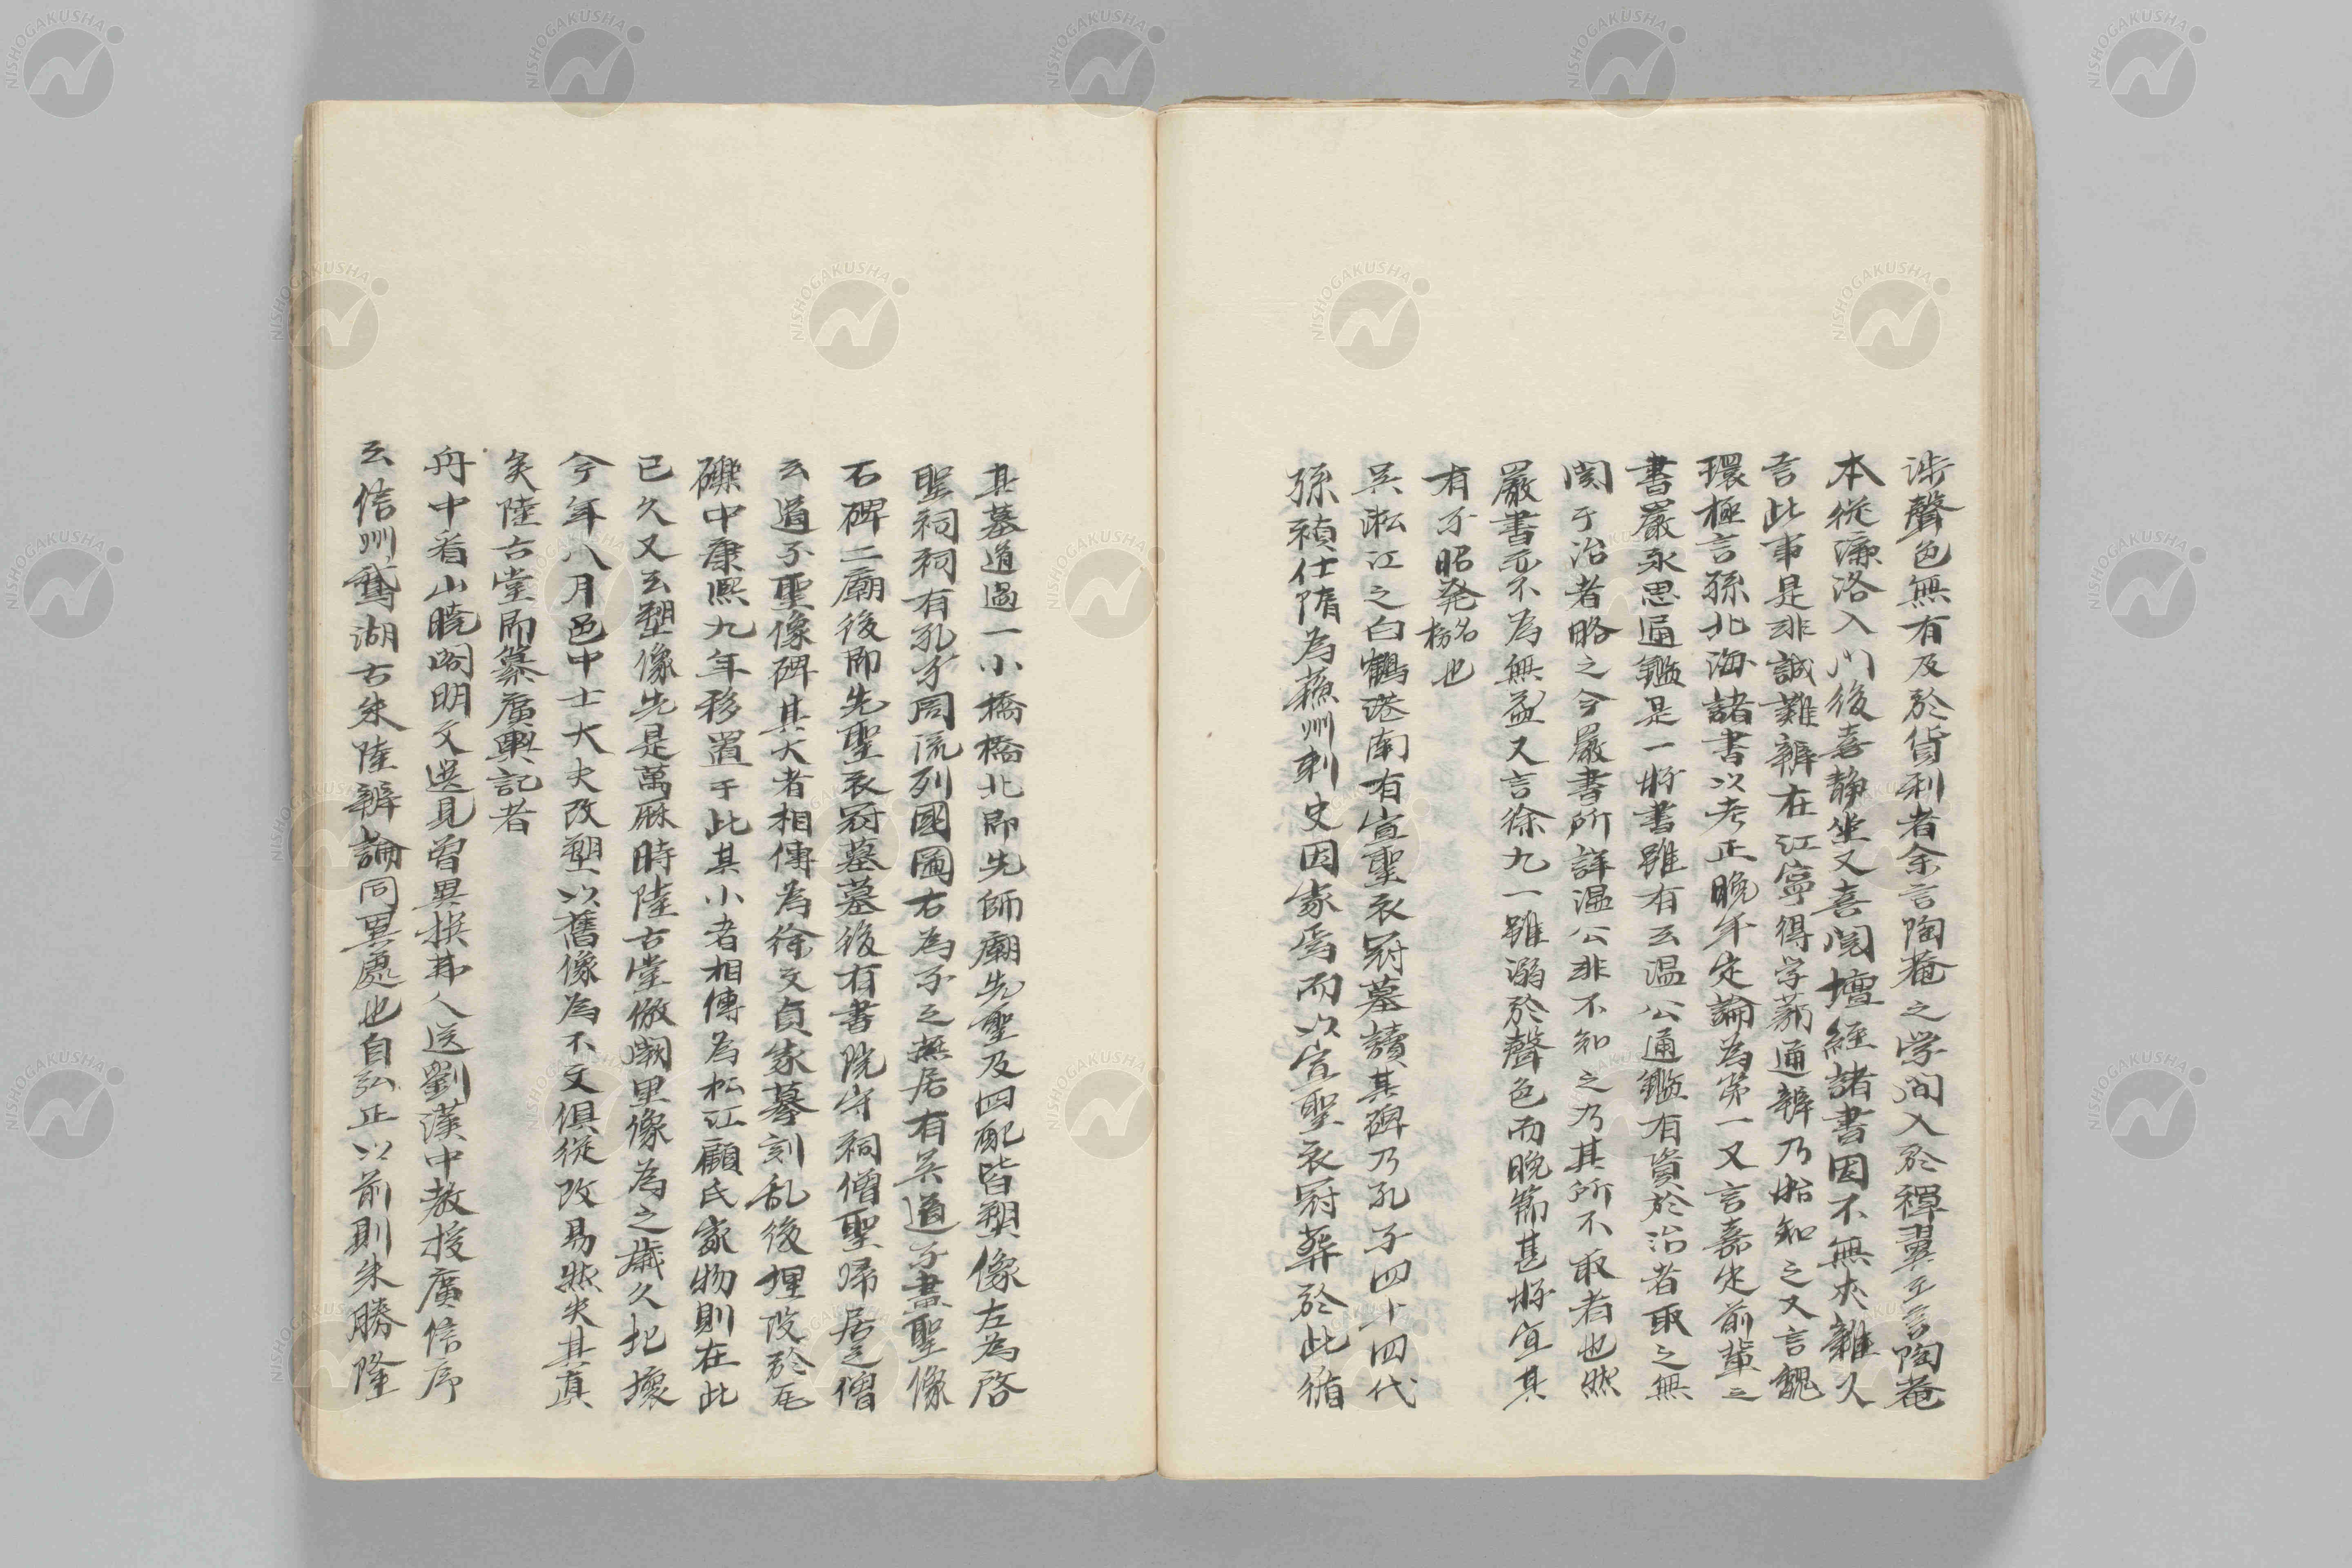 涉聲色無有及於貨利者余言陶菴之学问入於禪翼王言陶菴
本從濂洛入门後喜静坐又喜閲壇經諸書因不無夾雜久
言此事是非誠難辨在江寧得学蔀通辨乃始知之又言魏
環極言孫北海諸書以考正晚年定論為第一又言嘉定前輩之
書嚴永思通鑑是一好書雖有云温公通鑑有資於治者取之無
関于治者略之今嚴書所詳温公非不知之乃其所不取者也然
嚴書亦不為無益又言徐九一雖溺於聲色而晚節甚好宜其
有子昭発榜名也
吴淞江之白鶴港南有宣聖衣冠墓讀其碑乃孔子四十四代
孫禎仕隋為蘇州刺史因家焉而以宣聖衣冠葬於此循
其墓道過一小橋橋北即先師廟先聖及四配皆塑像左為啓
聖祠祠有孔子周流列國圖右為子之燕居有吴道子畫聖像
石碑二廟後即先聖衣冠墓墓後有書院守祠僧聖歸居之僧
云道子聖像碑其大者相傳為徐文貞家摹刻乱後埋沒於瓦
礫中康熙九年移置于此其小者相傳為松江顧氏家物則在此
已久又云塑像先是萬厤時陸古堂倣闕里像為之歲久圮壞
今年八月邑中士大夫改塑以舊像為不文俱從改易然失其真
矣陸古堂即纂廣輿記者
舟中看山曉閣明文選見曾異撰弗人送劉漢中教授廣信序
云信州鵞湖古朱陸辨論同異處也自弘正以前則朱勝隆